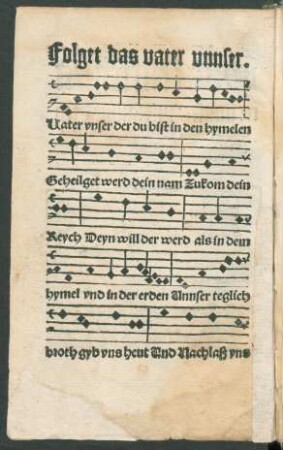 Folget das vater vnnser.
Uater vnser der du bist in den hymelen
Geheilget werd dein nam Zukom dein
Reych Deyn will der werd als in dem
hymel vnd in der erden Unnser teglich
broth gyb vns heut Und Nachlaß vns